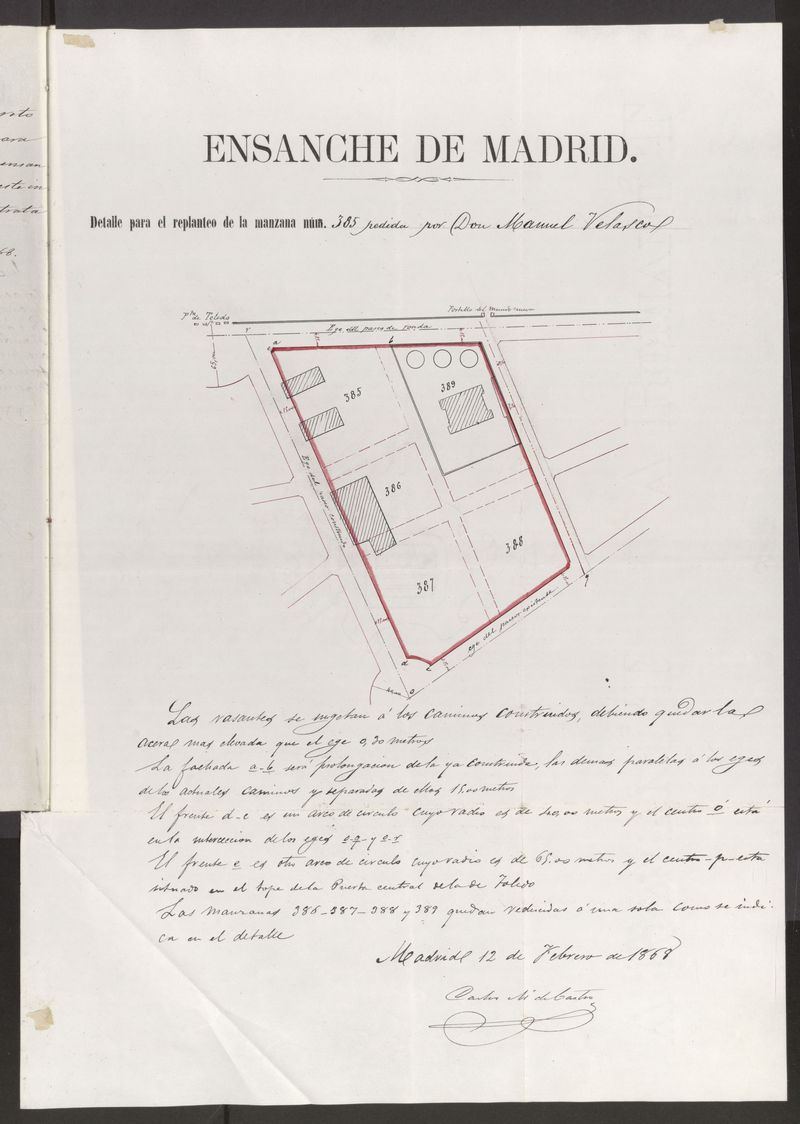 nto
ara
ensan
trata
68.
ENSANCHE DE MADRID.
Detalle para el replanteo de la manzana núm. 385 pedida por Don Manuel Velasco
Pta de Toledo
Portillo del Mundo nuevo
Ege del paseo de ronda
r
a
b
65,00
385
389
386
388
387
Ege del paseo construido
ege del paseo construido
q
d
c
o
Las rasantes se sugetan á los caminos construidos, debiendo quedar la
acera mas elevada que el ege 0,20 metros
La fachada a-b será prolongacion de la ya construida, las demas paralelas á los eges
de los actuales caminos y separadas de ellos 15,00 metros
El frente d-c es un arco de circulo cuyo radio es de 40,00 metros y el centro o está
en la interseccion de los eges o-q y o-r
El frente e es otro arco de circulo cuyo radio es de 65,00 metros y el centro-p-esta
situado en el tope de la Puerta central de la de Toledo
Las manzanas 386-387-388 y 389 quedan reducidas á una sola como se indi-
ca en el detalle
Madrid 12 de Febrero de 1868
Carlos Mª de Castro